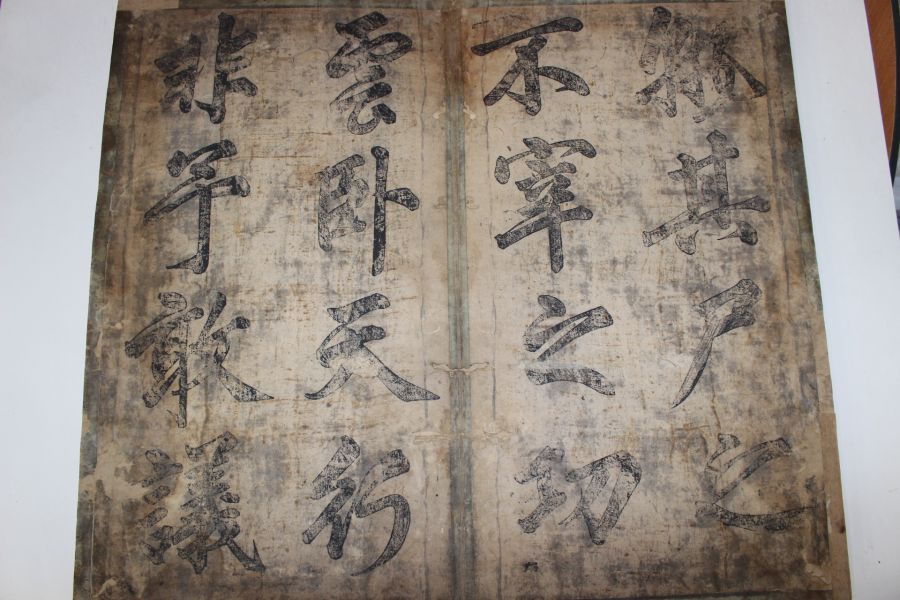 孰其尸之
不宰之功
雲臥天行
非予敢議